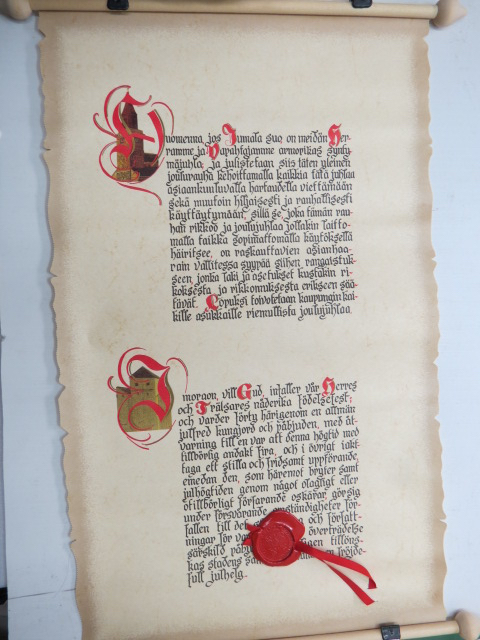 Huomenna, jos Jumala suo, on meidän Her-
ramme ja Vapahtajamme armorikas synty-
mäjuhla; ja julistetaan siis täten yleinen
joulurauha kehoittamalla kaikkia tätä juhlaa
asiaankuuluvalla hartaudella viettämään
sekä muutoin hiljaisesti ja rauhallisesti
käyttäytymään, sillä se, joka tämän rau-
han rikkoo ja joulujuhlaa jollakin laitto-
malla taikka sopimattomalla käytöksellä
häiritsee, on raskauttavien asianhaa-
rain vallitessa syypää siihen rangaistuk-
seen, jonka laki ja asetukset kustakin ri-
koksesta ja rikkomuksesta erikseen sää-
tävät. Lopuksi toivotetaan kaupungin kai-
kille asukkaille riemullista joulujuhlaa.
I morgon, vill Gud, infaller vår Herres
och Frälsares nåderika födelsefest;
och varder förty härigenom en allmän
julfred kungjord och påbjuden, med åt-
varning till en var att denna högtid med
tillbörlig andakt fira, och i övrigt iakt-
taga ett stilla och fridsamt uppförande,
emedan den, som häremot bryter samt
julhögtiden genom något olagligt eller
otillbörligt förfarande oskärar, gör sig
under försvårande omständigheter för-
fallen till det och författ-
ningar för överträdelse
särskild tillöns-
kas stadens en fröjde-
full julhelg.